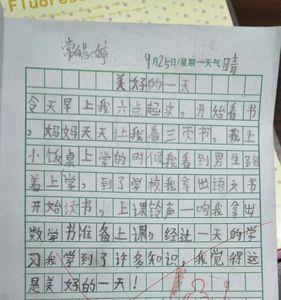 Fluoresce
常皓婷
9月25日/星期一天气晴
美好的一天
今天早上我六点起来,开始看书
,妈妈天天让我看三页书。我上
小饭桌上学的时候我看到男生跑
着上学,到了学校我拿出语文书
开始读书,上课铃声一响我拿出
数学书准备上课,经过一天的学
习我学到了许多知识,我觉得这
是美好的一天!